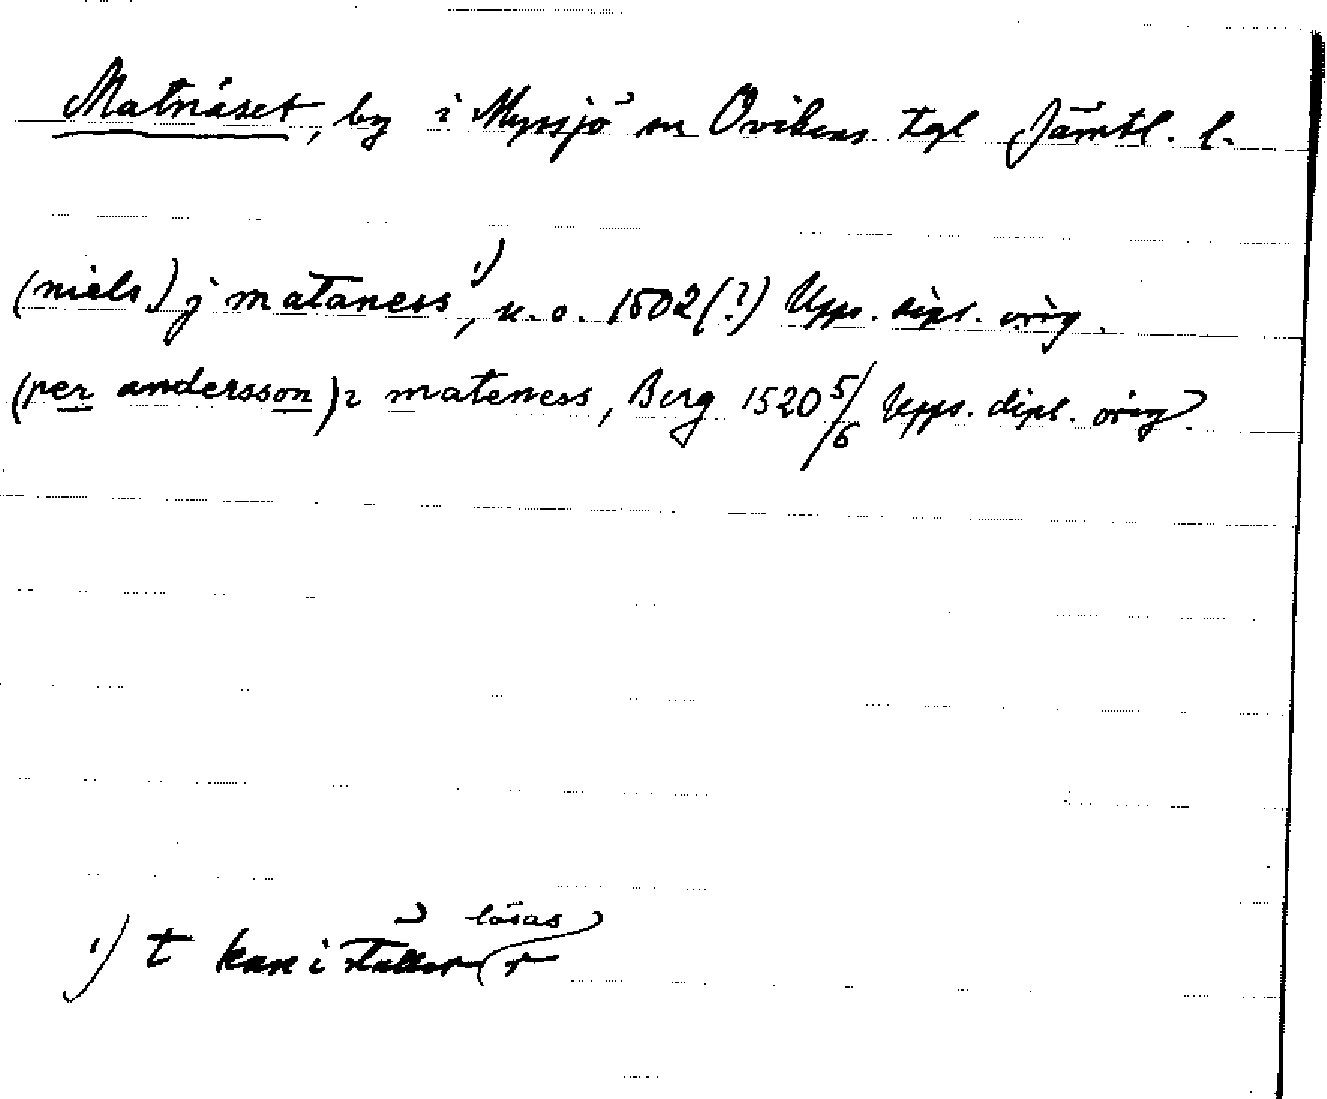 Matnäset, by i Myssjö sn Ovikens tgl Jämtl. l.
(niels) j mataness ¹⁾, u. o. 1502(?) Upps. dipl. orig.
(per andersson) i mateness, Berg 1520 5/6 Upps. dipl. orig.
¹⁾ t kan i stället läsas r